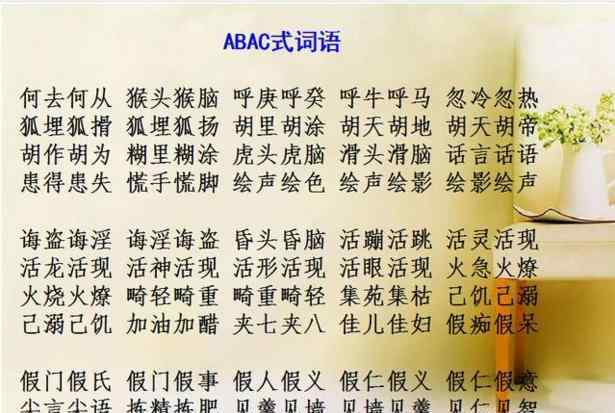 ABAC式词语
何去何从 猴头猴脑 呼庚呼癸 呼牛呼马 忽冷忽热
狐埋狐搰 狐埋狐扬 胡里胡涂 胡天胡地 胡天胡帝
胡作胡为 糊里糊涂 虎头虎脑 滑头滑脑 话言话语
患得患失 慌手慌脚 绘声绘色 绘声绘影 绘影绘声
诲盗诲淫 诲淫诲盗 昏头昏脑 活蹦活跳 活灵活现
活龙活现 活神活现 活形活现 活眼活现 火急火燎
火烧火燎 畸轻畸重 畸重畸轻 集苑集枯 己饥己溺
己溺己饥 加油加醋 夹七夹八 佳儿佳妇 假痴假呆
假门假氏 假门假事 假人假义 假仁假义 假仁假意
尖言尖语 拣精拣肥 见羹见墙 见墙见羹 见仁见智